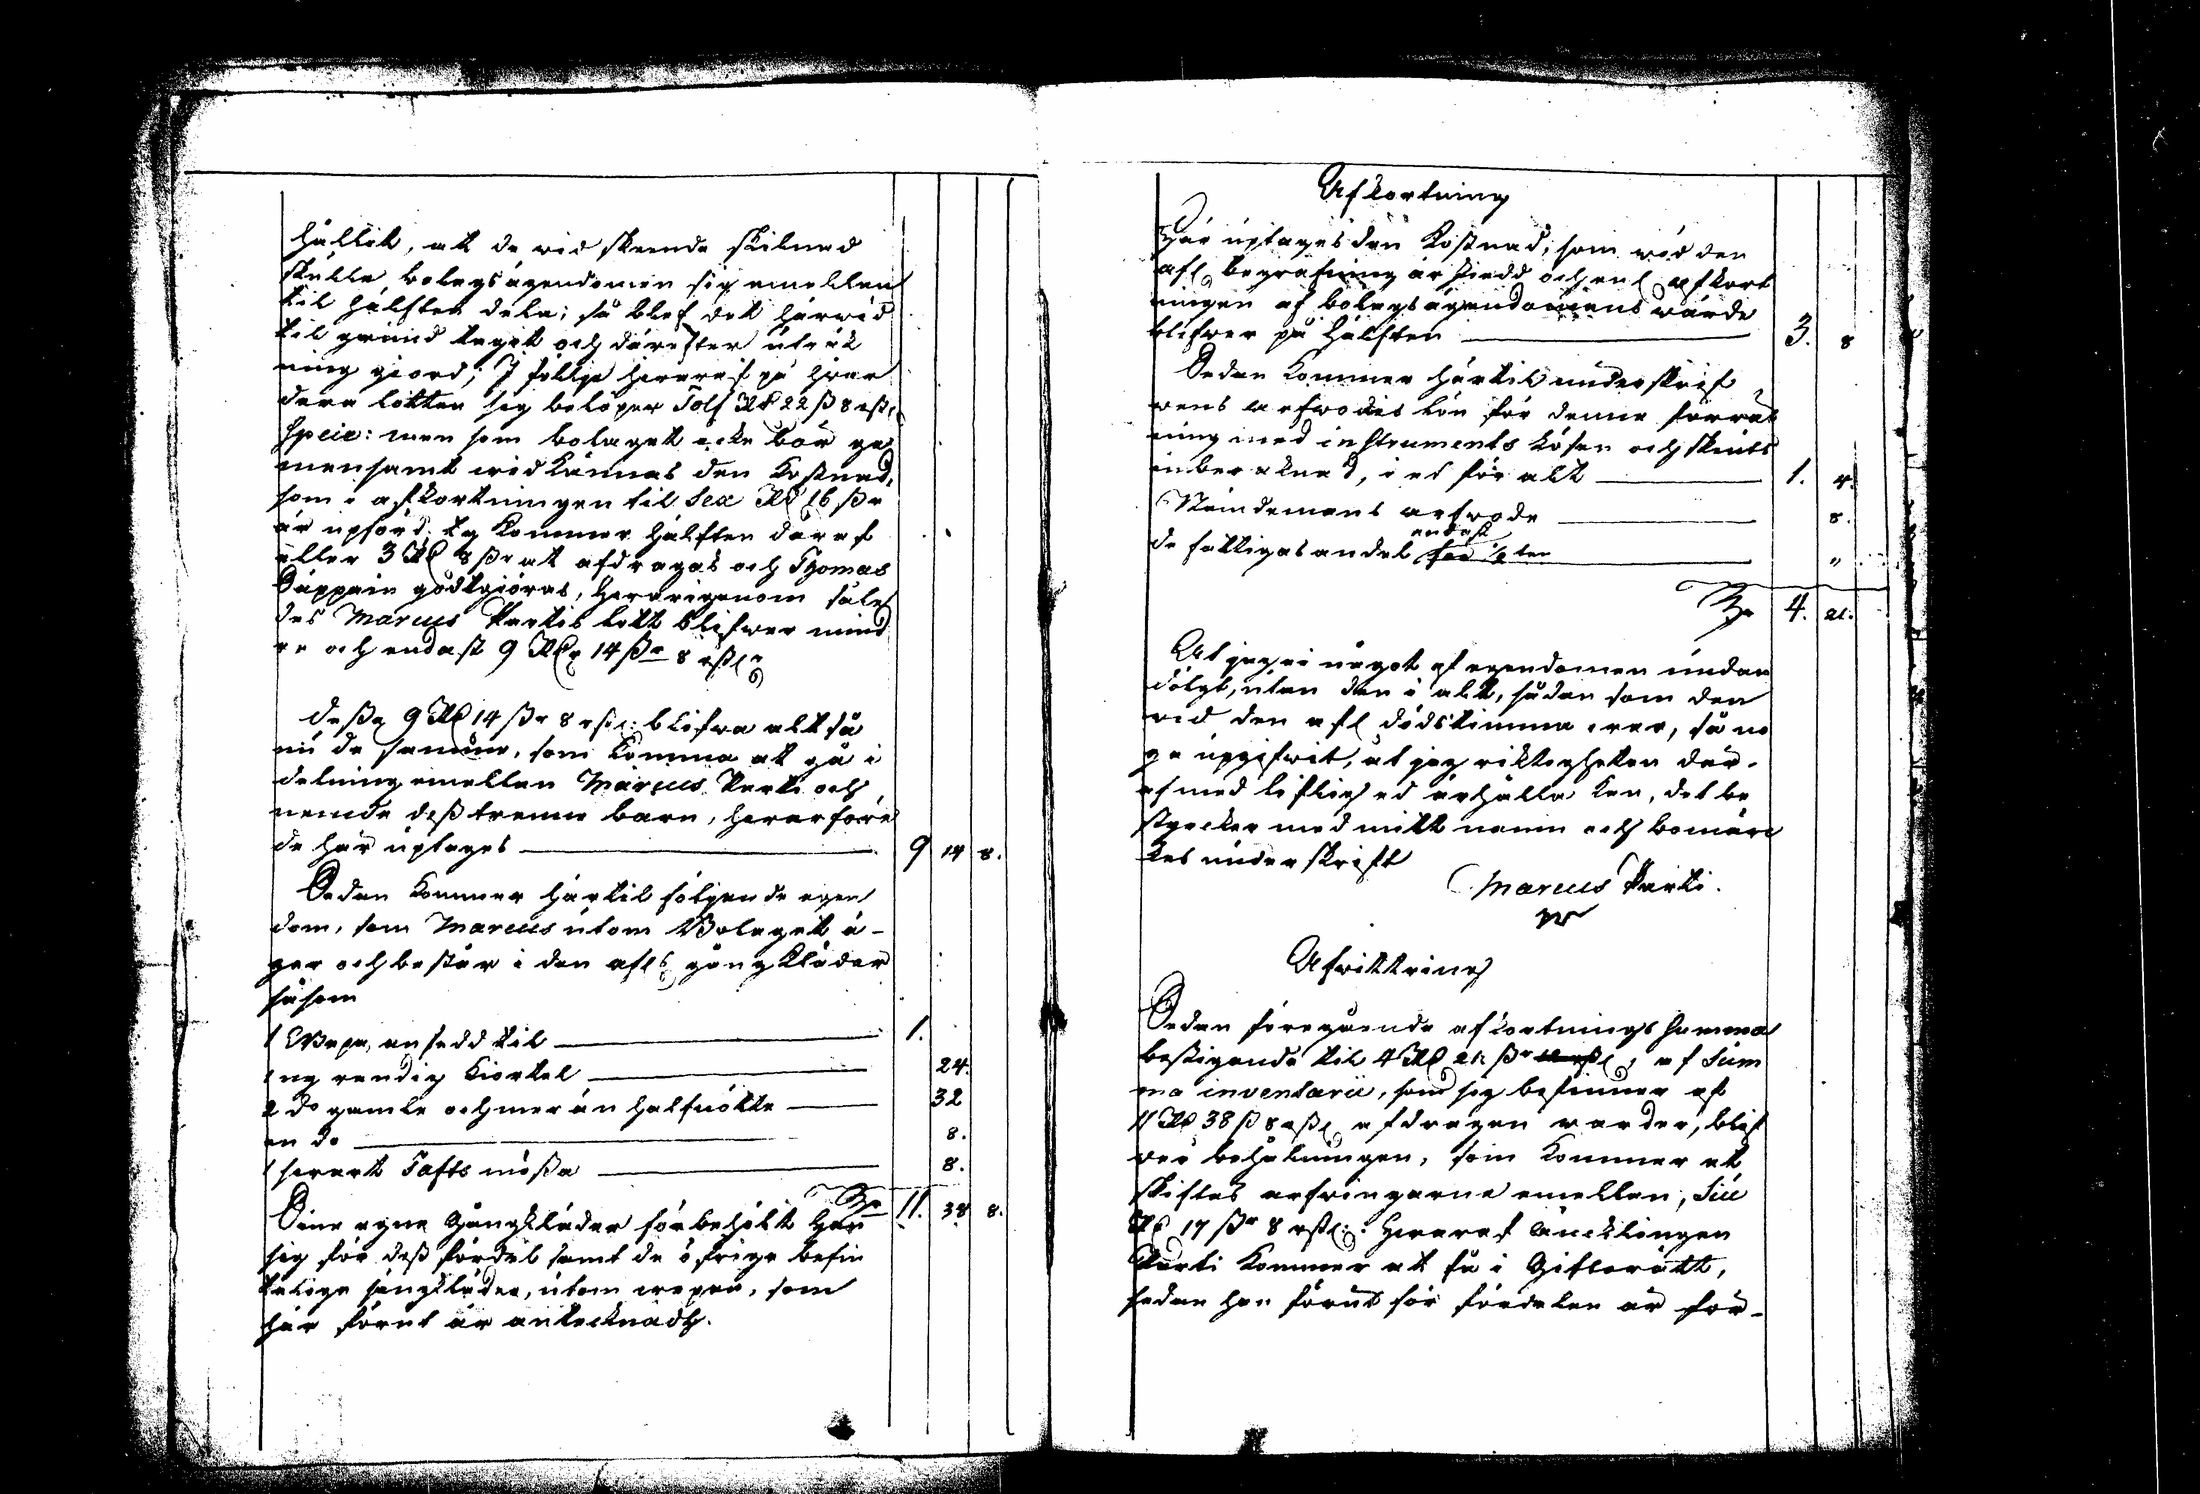 hållit, at de vid skeende skilnad
skulle bolagsägendomen sig emellan
til hälften dela; så blef det härvid
til grund tagit och därefter uträk
ning giord; I följe hvaraf på hvar
dera lotten sig belöper Tolf Rd 22 ß 8 rst.
Specie: men som bolaget icke bör ge
mensamt vidkännas den kostnad,
som i afkortningen til Sex Rd 16 ßr
är upförd, ty kommer hälften däraf
eller 3 Rd 8 ßr at afdragas och Thomas
godtgiöras, hvarigenom såle
des Marcus Partis lott blifver mind
re och endast 9 Rd 14 ßr 8 rst.
dessa 9 Rd 14 ßr 8 rst: blifva altså
nu de samma, som komma at gå i
delning emellan Marcus Parti och
nemde dess trenne barn, hvarföre
de här uptages 9 14 8.
Sedan kommer härtil följande egen
dom, som Marcus utom Bolaget ä-
ger och består i den afl:s gångkläder
såsom
1 Wepa, ansedd til 1.
1 ny randig kiortel 24.
2 do gamla och mer än halfnötte 32
en do 8.
1 svart Tafts mössa 8.
Sa 11. 38 8.
Sine egne Gångkläder förbehölt han
sig för dess fördel samt de öfrige befin
telige sängkläder, utom wepan, som
här förut är antecknadh.
Afkortning
Här uptages den kostnad, som vid den
afl. begrafning är skedd och enl afkort
ningen af bolagsägendomens värde
blifver på hälften 3. 8
Sedan kommer härtil underskrif
vens arfvodes lön för denne förrät
ning med instruments lösen och skiuts
inberäknad, i ed för alt 1. 4.
Nämdemans arfvode 8.
de fattigas andel endast för 1/8 ten "
Sa 4. 21.
At jag ei något af egendomen undan
dölgt, utan den i alt, sådan som den
vid den afl dödstimma var, så no
ga upgifvit, at jag riktigheten där-
af med liflig ed erhålla kan, det be
styrcker med mitt namn och bomär
kes underskrift
Marcus Parti.
Afvittring
Sedan föregående afkortnings Summa
bestigande til 4 Rd 21 ßr af Sum
ma inventarii, som sig befinner af
11 Rd 38 ß 8 rst afdragen varder, blif
ver behålningen, som kommer at
skiftas arfvingarne emellan, Siu
Rd 17 ßr 8 rst: Hvaraf äncklingen
Parti kommer at få i Giftorätt,
sedan han förut för fördelen är för-